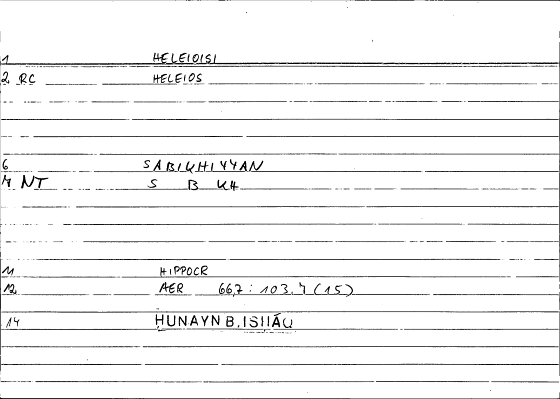 1 HELEIOISI
2 RC HELEIOS
6 SABIKHIYYAN
7 NT S B KH
11 HIPPOCR
12 AER 66,7 : 103.7 (15)
14 HUNAYN B. ISHĀQ